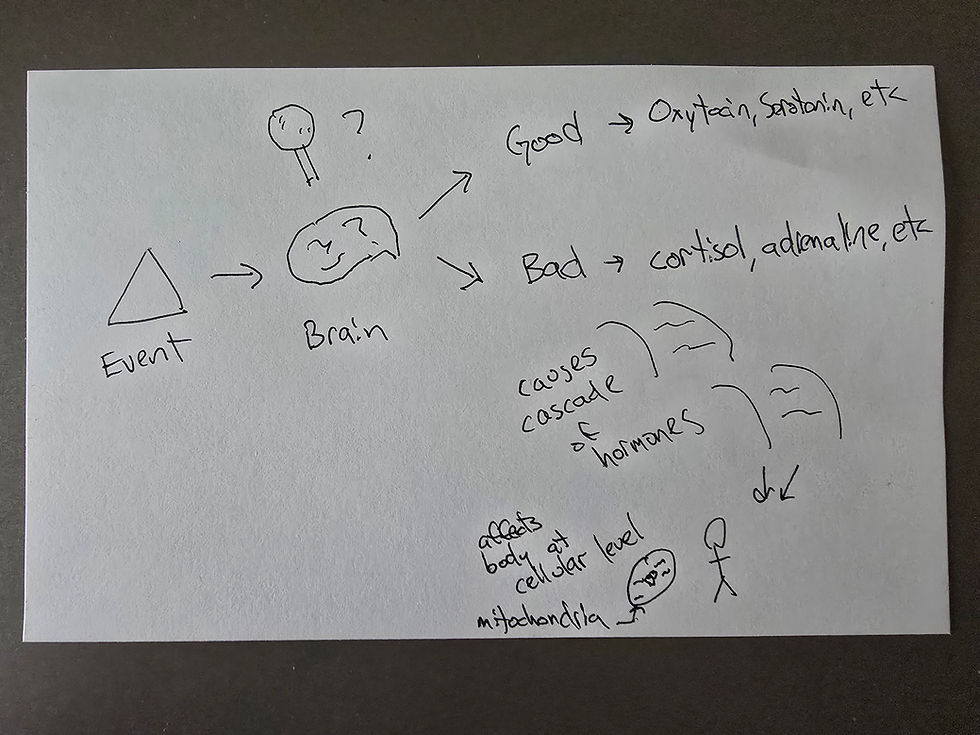 ?
Good → Oxytocin, Seratonin, etc
?
Event → Brain
Bad → cortisol, adrenaline, etc
causes
cascade
of
hormones
affects
body at
cellular level
mitochondria